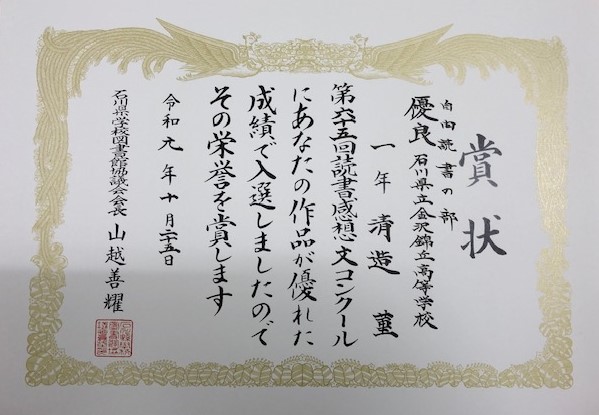 賞状
自由読書の部
優良 石川県立金沢錦丘高等学校
一年 清造 菫
第六十五回読書感想文コンクール
にあなたの作品が優れた
成績で入選しましたので
その栄誉を賞します
令和元年十月二十五日
石川県学校図書館協議会会長 山越善耀